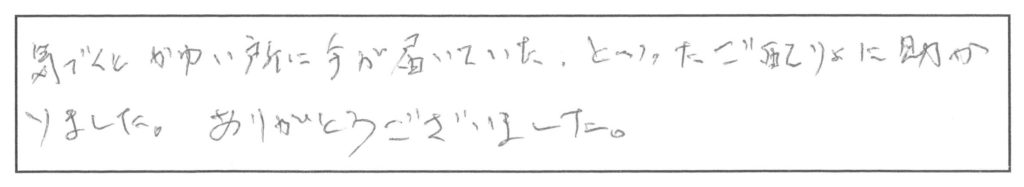 かゆい所に手が届いていた、といったご配りょに助か
りました。 ありがとうございました。